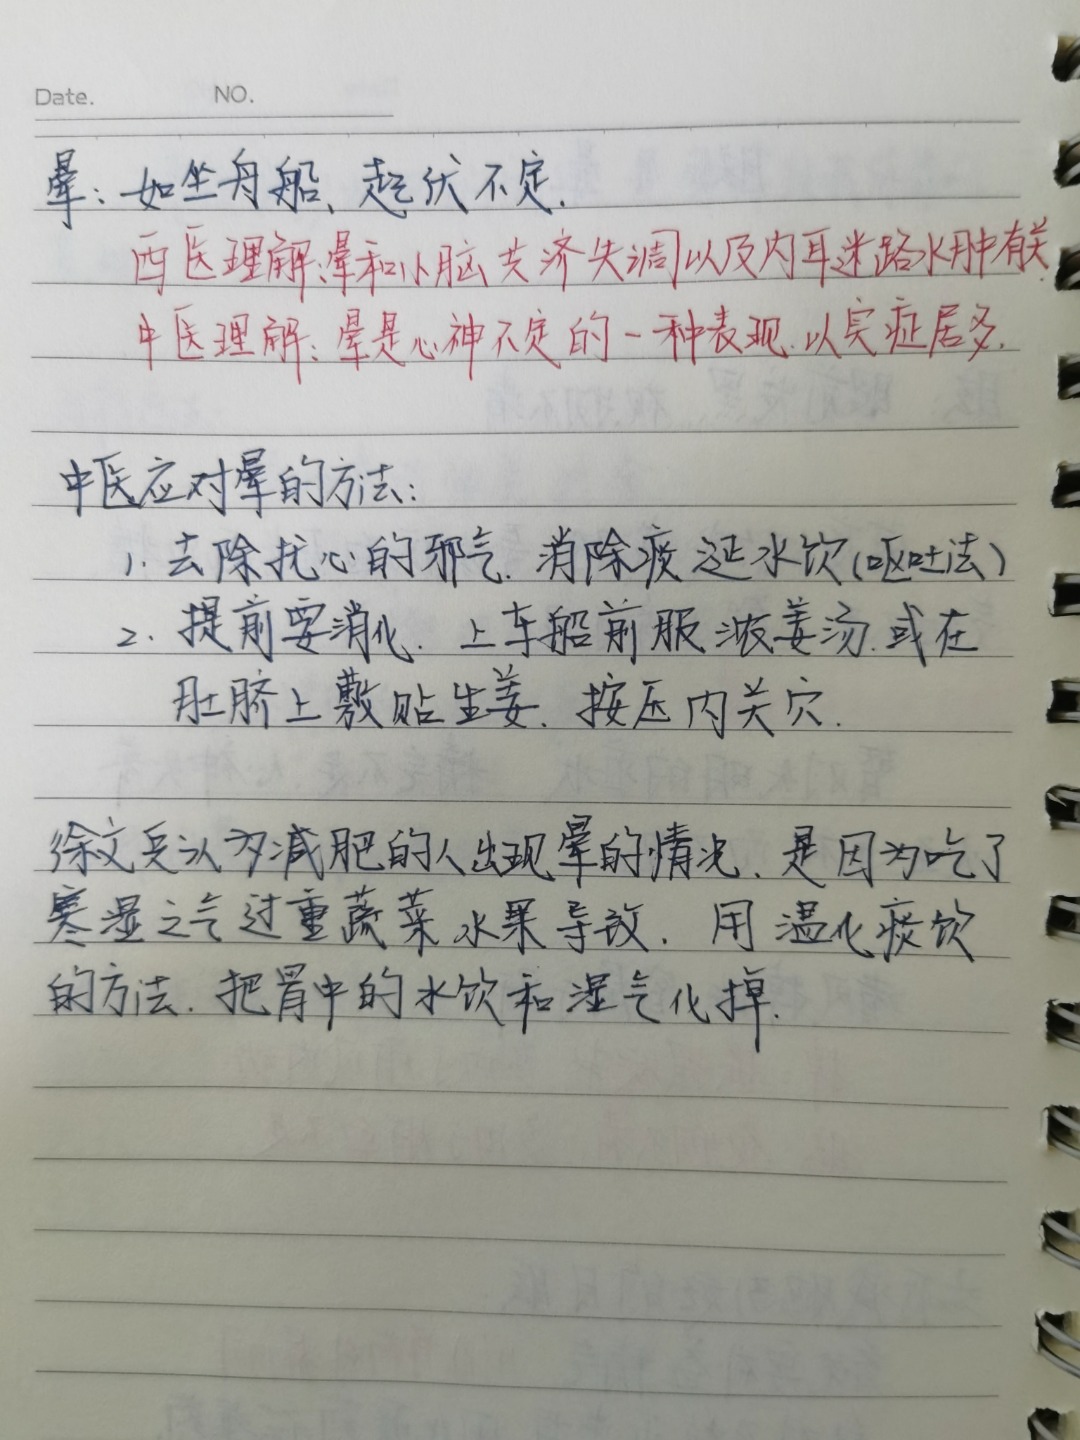 Date. NO.
晕：如坐舟船、起伏不定.
西医理解：晕和小脑共济失调以及内耳迷路水肿有关.
中医理解：晕是心神不定的一种表现.以实症居多.
中医应对晕的方法：
1. 去除扰心的邪气.消除痰涎水饮(呕吐法)
2. 提前要消化.上车船前服浓姜汤.或在
肚脐上敷贴生姜.按压内关穴.
徐文兵认为减肥的人出现晕的情况.是因为吃了
寒湿之气过重蔬菜水果导致.用温化痰饮
的方法.把胃中的水饮和湿气化掉.